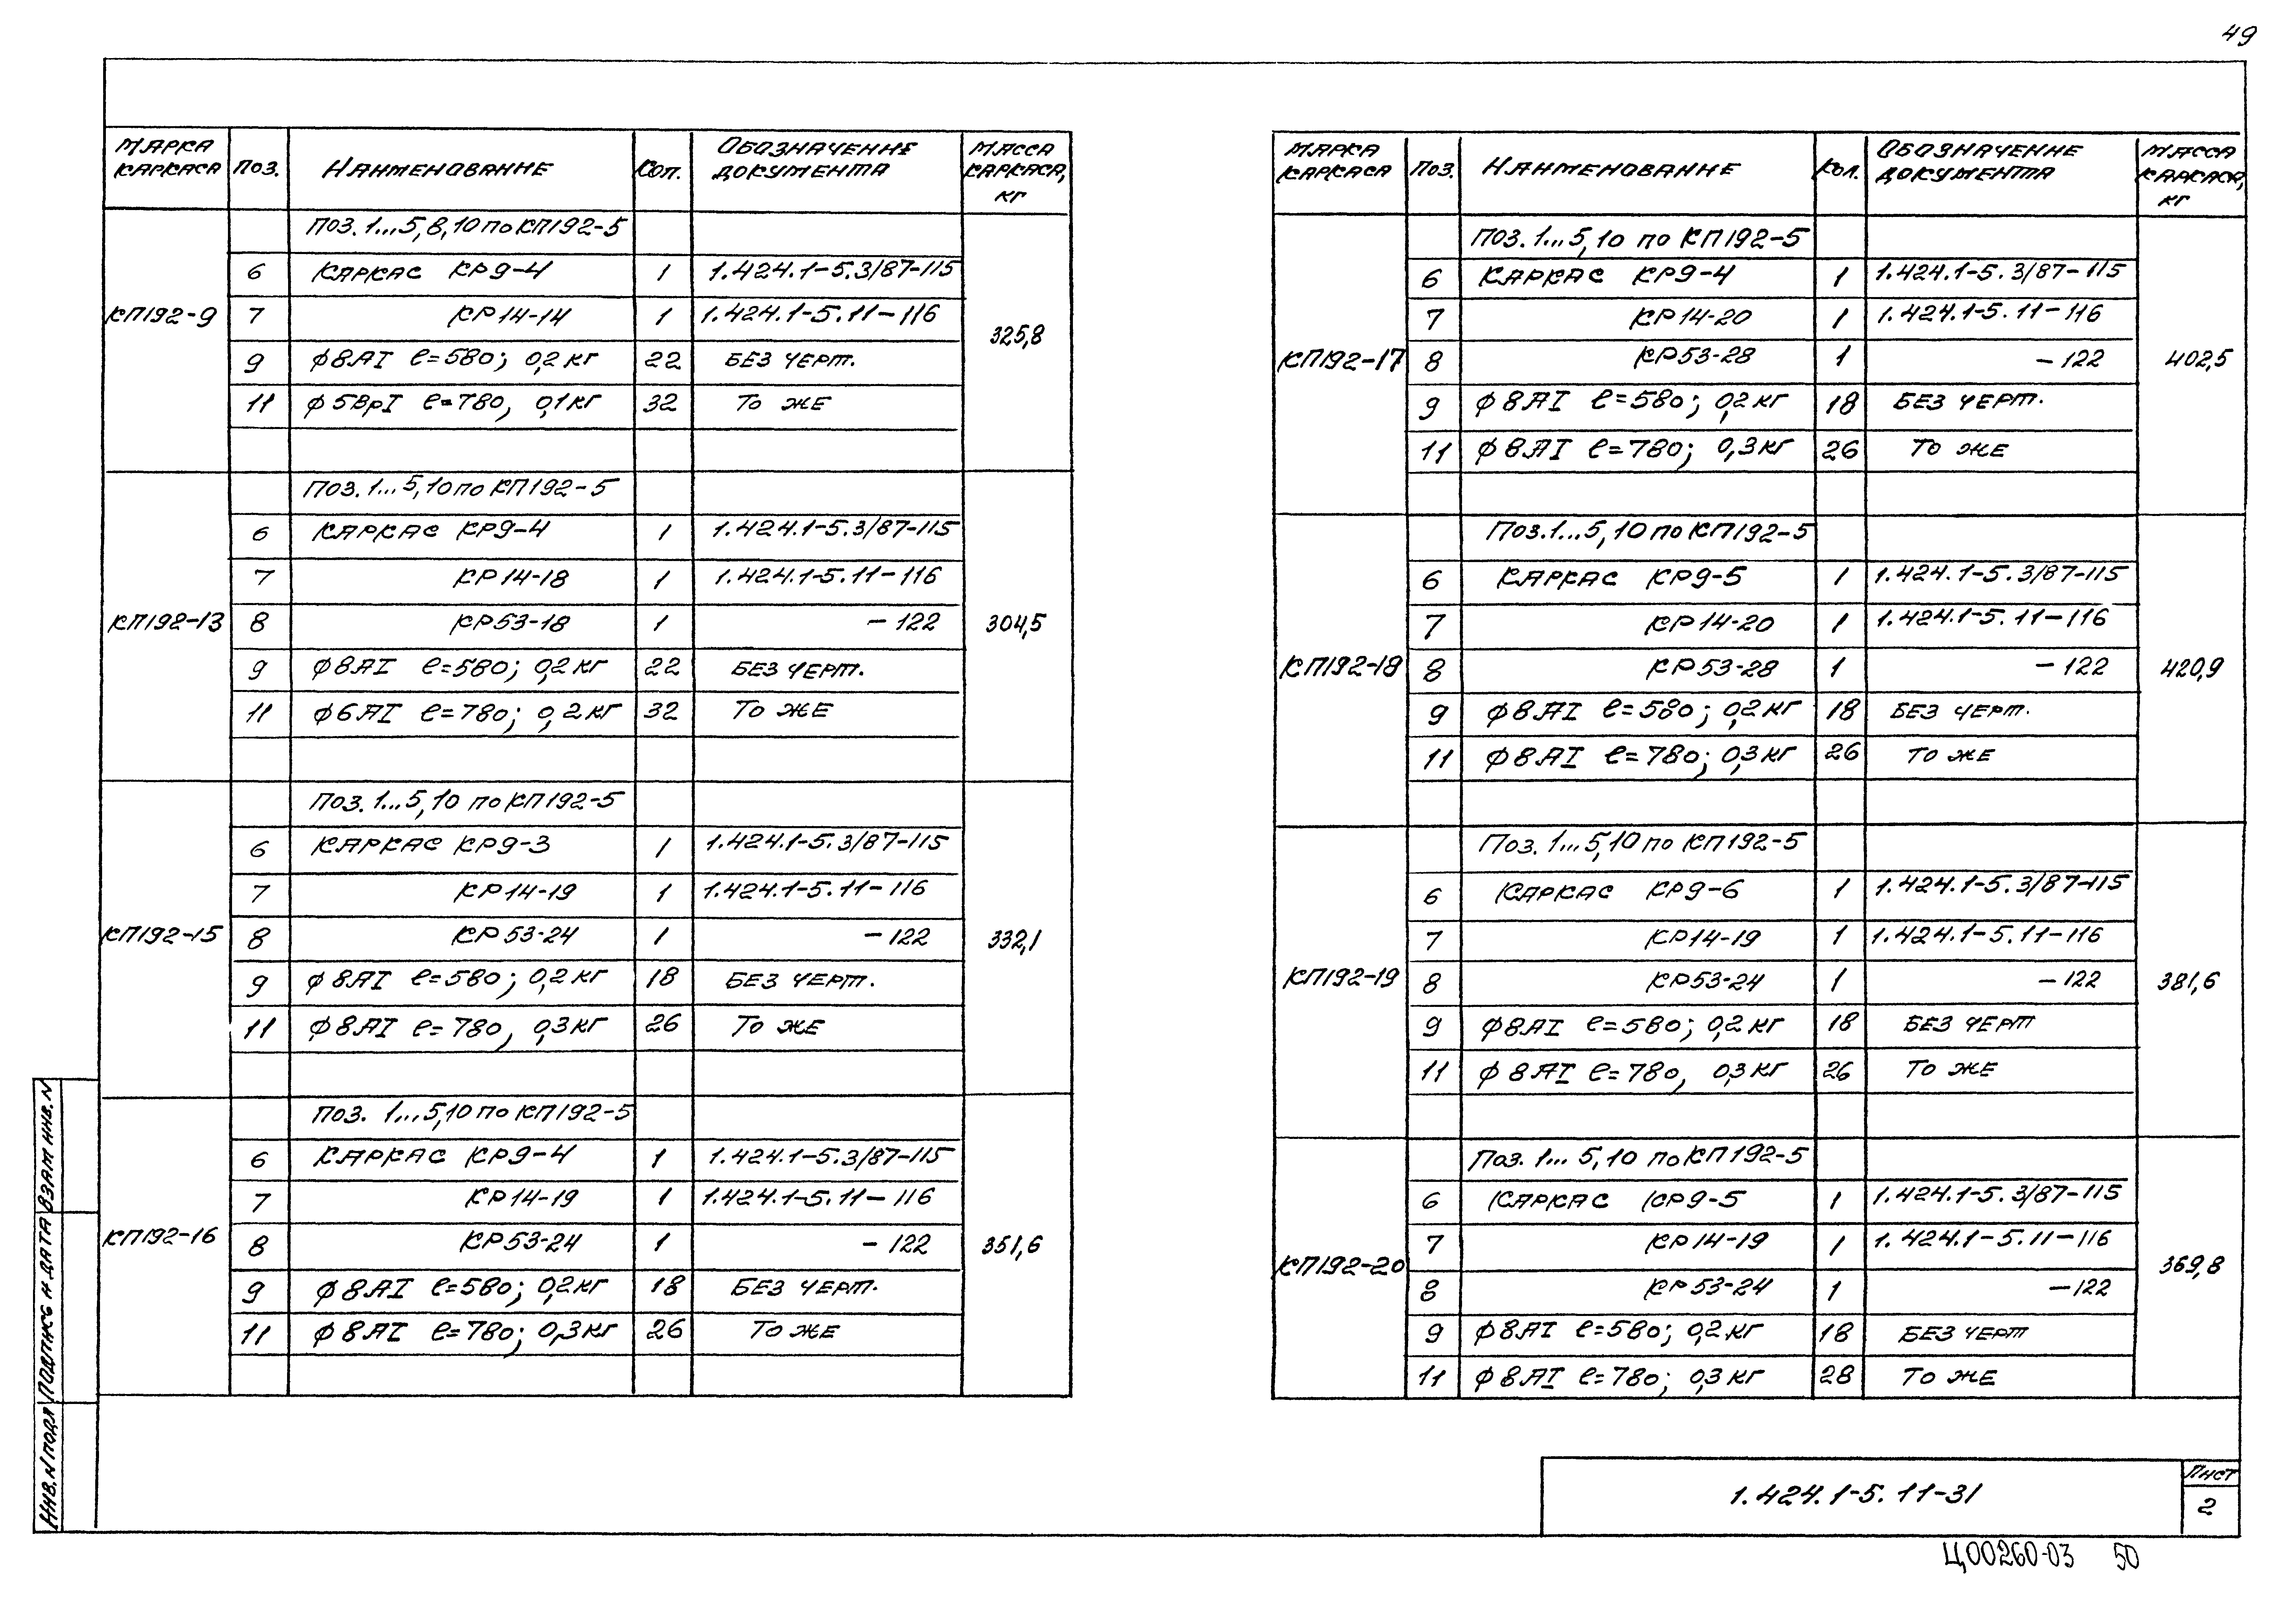 49
МАРКА КАРКАСА ПОЗ. НАИМЕНОВАНИЕ КОЛ. ОБОЗНАЧЕНИЕ ДОКУМЕНТА МАССА КАРКАСА, КГ
ПОЗ. 1...5, 8, 10 ПО КП192-5
6 КАРКАС КР9-4 1 1.424.1-5.3/87-115
КП192-9 7 КР14-14 1 1.424.1-5.11-116 325,8
9 ϕ8АI ℓ=580; 0,2 КГ 22 БЕЗ ЧЕРТ.
11 ϕ5ВрI ℓ=780, 0,1 КГ 32 ТО ЖЕ
ПОЗ. 1...5, 10 ПО КП192-5
6 КАРКАС КР9-4 1 1.424.1-5.3/87-115
7 КР14-18 1 1.424.1-5.11-116
КП192-13 8 КР53-18 1 -122 304,5
9 ϕ8АI ℓ=580; 0,2 КГ 22 БЕЗ ЧЕРТ.
11 ϕ6АI ℓ=780; 0,2 КГ 32 ТО ЖЕ
ПОЗ. 1...5, 10 ПО КП192-5
6 КАРКАС КР9-3 1 1.424.1-5.3/87-115
7 КР14-19 1 1.424.1-5.11-116
КП192-15 8 КР53-24 1 -122 332,1
9 ϕ8АI ℓ=580; 0,2 КГ 18 БЕЗ ЧЕРТ.
11 ϕ8АI ℓ=780, 0,3 КГ 26 ТО ЖЕ
ПОЗ. 1...5, 10 ПО КП192-5
6 КАРКАС КР9-4 1 1.424.1-5.3/87-115
7 КР14-19 1 1.424.1-5.11-116
КП192-16 8 КР53-24 1 -122 351,6
9 ϕ8АI ℓ=580; 0,2 КГ 18 БЕЗ ЧЕРТ.
11 ϕ8АI ℓ=780; 0,3 КГ 26 ТО ЖЕ
МАРКА КАРКАСА ПОЗ. НАИМЕНОВАНИЕ КОЛ. ОБОЗНАЧЕНИЕ ДОКУМЕНТА МАССА КАРКАСА, КГ
ПОЗ. 1...5, 10 ПО КП192-5
6 КАРКАС КР9-4 1 1.424.1-5.3/87-115
7 КР14-20 1 1.424.1-5.11-116
КП192-17 8 КР53-28 1 -122 402,5
9 ϕ8АI ℓ=580; 0,2 КГ 18 БЕЗ ЧЕРТ.
11 ϕ8АI ℓ=780; 0,3 КГ 26 ТО ЖЕ
ПОЗ. 1...5, 10 ПО КП192-5
6 КАРКАС КР9-5 1 1.424.1-5.3/87-115
7 КР14-20 1 1.424.1-5.11-116
КП192-18 8 КР53-28 1 -122 420,9
9 ϕ8АI ℓ=580; 0,2 КГ 18 БЕЗ ЧЕРТ.
11 ϕ8АI ℓ=780; 0,3 КГ 26 ТО ЖЕ
ПОЗ. 1...5, 10 ПО КП192-5
6 КАРКАС КР9-6 1 1.424.1-5.3/87-115
7 КР14-19 1 1.424.1-5.11-116
КП192-19 8 КР53-24 1 -122 381,6
9 ϕ8АI ℓ=580; 0,2 КГ 18 БЕЗ ЧЕРТ
11 ϕ8АI ℓ=780, 0,3 КГ 26 ТО ЖЕ
ПОЗ. 1...5, 10 ПО КП192-5
6 КАРКАС КР9-5 1 1.424.1-5.3/87-115
7 КР14-19 1 1.424.1-5.11-116
КП192-20 8 КР53-24 1 -122 369,8
9 ϕ8АI ℓ=580; 0,2 КГ 18 БЕЗ ЧЕРТ
11 ϕ8АI ℓ=780; 0,3 КГ 28 ТО ЖЕ
ИНВ. N ПОДЛ ПОДПИСЬ И ДАТА ВЗАМ ИНВ. N
1.424.1-5.11-31
ЛИСТ
2
Ц00260-03 50